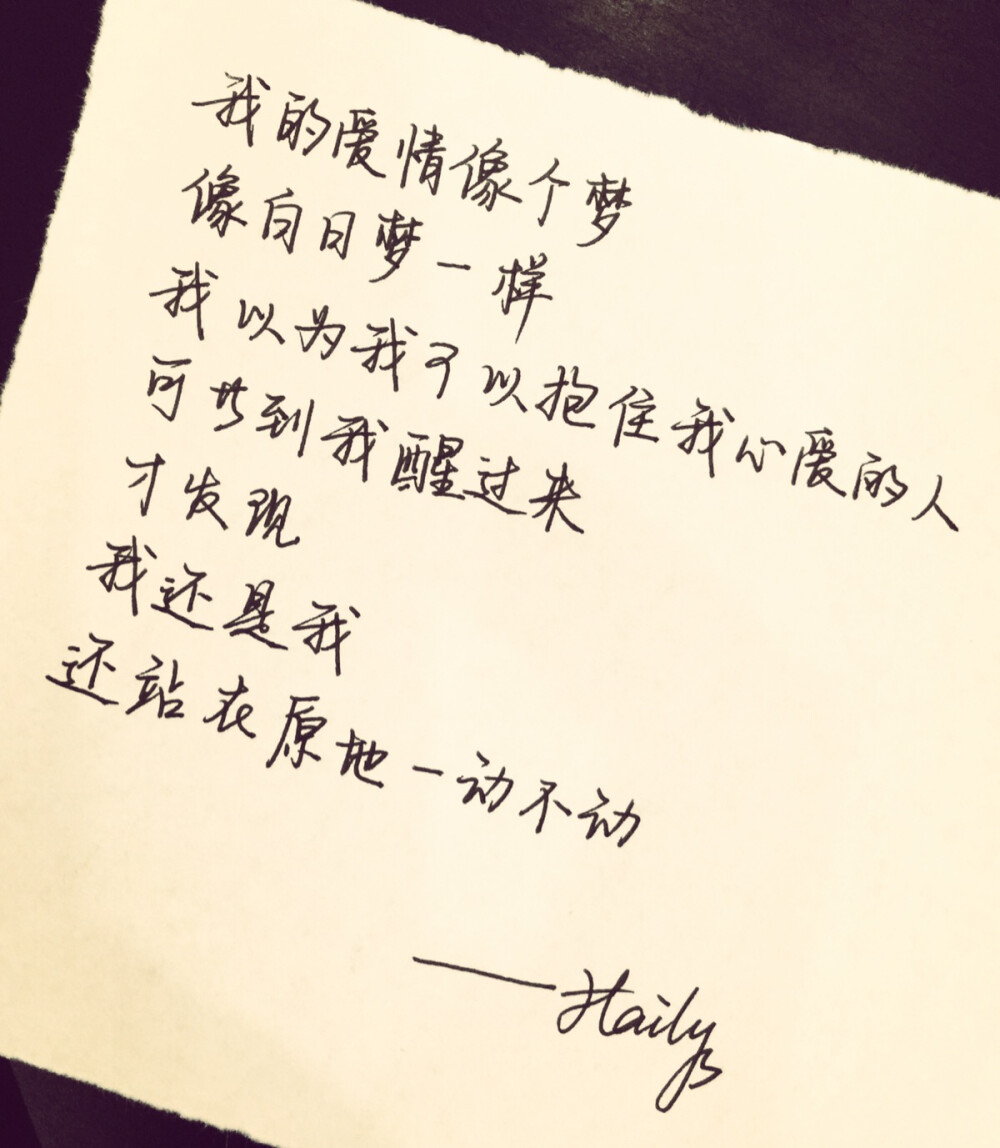 我的爱情像个梦
像白日梦一样
我以为我可以抱住我心爱的人
可当到我醒过来
才发现
我还是我
还站在原地一动不动
——Haily